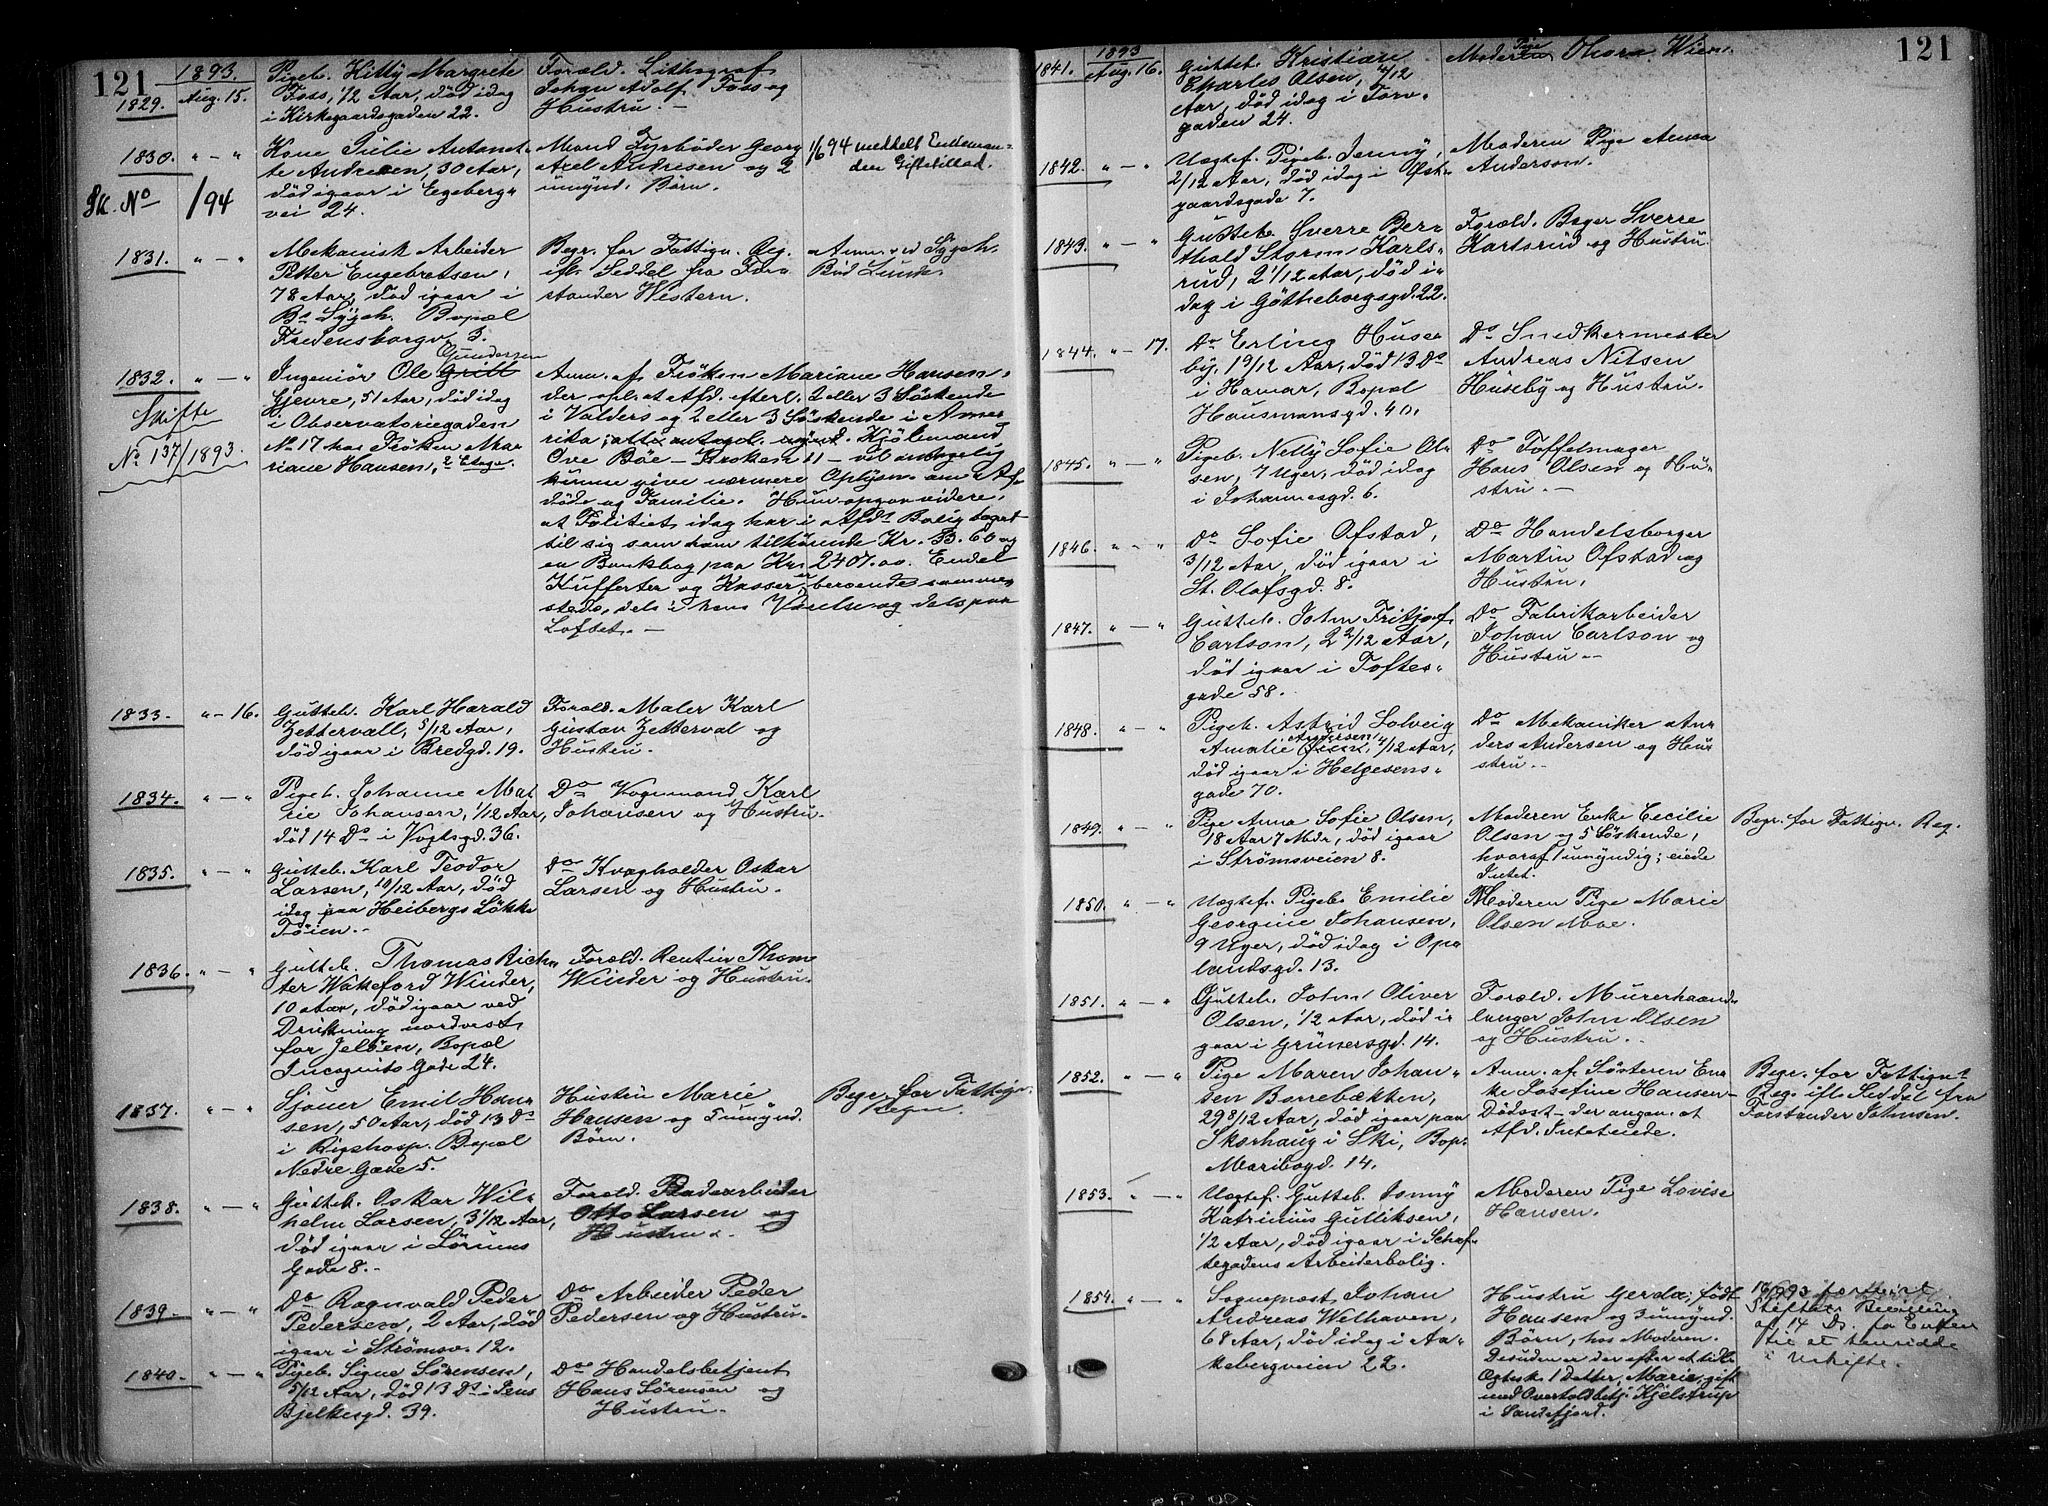 121
1893.
1829. Aug. 15.
Pigeb. Kitty Margrete
Foss, 1/2 Aar, død idag
i Kirkegaardsgaden 22.
Foræld. Lithograf
Johan Adolf Foss og
Hustru. —
1830. " — "
Kone Julie Antonet-
te Andresen, 30 Aar,
død igaar i Egeberg-
vei 24.
Mand Fyrbøder Georg
Axel Andresen og 2
umynd. Børn.
1/6 94 meddelt Enkeman-
den Giftetillad.
Sk. No /94
1831. " — "
Mekanisk Arbeider
Petter Engebretsen,
78 Aar, død igaar i
Bs Sygeh. Bopæl
Fredensborgv. 3.
Begr. for Fattigv. Reg.
ifl. Seddel fra For-
stander Western.
Anm. ved Sygeh.
Bud Lunde.
1832. " — "
Skifte
No 137/1893.
Gundersen
Ingeniør Ole
Gjevre, 51 Aar, død idag
i Observatoriegaden
No 17 hos Frøken Ma-
riane Hansen, 2 Etage.
Anm. af Frøken Mariane Hansen,
der opl. at Afd. efterl. 2 eller 3 Søskende
i Valders og 2 eller 3 Søskende i Ame-
rika, alle antagel. mynd. Kjøbmand
Ove Bøe — Kroken 11 — vil antagelig
kunne give nærmere Oplysn. om Af-
døde og Familie. Hun opgav videre,
at Politiet idag har i Afds Bolig taget
til sig som ham tilhørende Kr. 13.60 og
en Bankbog paa Kr. 2407.00. Endel
Kufferter og Kasser er beroende samme-
steds, dels i hans Værelse og dels paa
Loftet. —
1833. " — 16.
Gutteb. Karl Harald
Zettervall, 5/12 Aar,
død igaar i Bredgd. 19.
Foræld. Maler Karl
Gustav Zetterval og
Hustru.
1834. " — "
Pigeb. Johanne Mat-
hie Johansen, 1/12 Aar,
død 14 Ds i Vogtsgd. 36.
Do Vognmand Karl
Johansen og Hustru.
1835. " — "
Gutteb. Karl Teodor
Larsen, 10/12 Aar, død
idag paa Heibergs Løkke
Tøien. —
Do Kvægholder Oskar
Larsen og Hustru.
1836. " — "
Gutteb. Thomas Rich-
ter Wakeford Winder,
10 Aar, død igaar ved
Drukning nordvest
for Jeløen, Bopæl
Incognito Gade 24.
Foræld. Rentier Thom.
Winder og Hustru.
1837. " — "
Sjouer Emil Han-
sen, 50 Aar, død 13 Ds
i Rigshosp. Bopæl
Nedre Gade 5.
Hustru Marie
Hansen og 5 umynd.
Børn.
Begr. for Fattigv.
Regn.
1838. " — "
Gutteb. Oskar Wil-
helm Larsen, 3 1/12 Aar,
død igaar i Sørums
Gade 8. —
Foræld.
Otto Larsen og
Hustru.
1839. " — "
Do Ragnvald Peder
Pedersen, 2 Aar, død
igaar i Strømsv. 12.
Do Arbeider Peder
Pedersen og Hustru.
1840. " — "
Pigeb. Signe Sørensen,
5/12 Aar, død 13 Ds i Jens
Bjelkesgd. 39.
Do Handelsbetjent
Hans Sørensen og
Hustru.
121
1893
1841. Aug. 16.
Gutteb. Kristian
Charles Olsen, 4/12
Aar, død idag i Torv-
gaden 24.
Moderen Pige Thora Wiem.
1842. " — "
Uægtef. Pigeb. Jenny,
2/12 Aar, død idag i Øst-
gaardsgade 7.
Moderen Pige Anna
Anderson.
1843. " — "
Gutteb. Sverre Ber-
thold Storm Karls-
rud, 2 1/12 Aar, død i-
dag i Gøtheborgsgd. 22.
Foræld. Bager Sverre
Karlsrud og Hustru
1844. " — 17.
Do Erling Huse-
by, 19/12 Aar, død 13 Ds
i Hamar, Bopæl
Hausmansgd. 40.
Do Snedkermester
Andreas Nilsen
Huseby og Hustru.
1845. " — "
Pigeb. Nelly Sofie Ol-
sen, 7 Uger, død idag
i Johannesgd. 6.
Do Tøffelmager
Hans Olsen og Hu-
stru. —
1846. " — "
Do Sofie Ofstad,
3/12 Aar, død igaar i
St. Olafsgd. 8.
Do Handelsborger
Martin Ofstad og
Hustru.
1847. " — "
Gutteb. John Fritjof
Carlson, 2 2/12 Aar,
død igaar i Toftes-
gade 58.
Do Fabrikarbeider
Johan Carlson og
Hustru. —
1848. " — "
Pigeb. Astrid Solveig
Andersen
Amalie Olsen, 4/12 Aar,
død igaar i Helgesens-
gade 70.
Do Mekaniker An-
ders Andersen og Hu-
stru. —
1849. " — "
Pige Anna Sofie Olsen,
18 Aar 7 Mdr, død igaar
i Strømsveien 8.
Moderen Enke Cecilie
Olsen og 5 Søskende,
hvoraf 1 umyndig; eiede
Intet.
Begr. for Fattigv. Reg.
1850. " — "
Uægtef. Pigeb. Emilie
Georgine Johansen,
9 Uger, død idag i Op-
landsgd. 13.
Moderen Pige Marie
Olsen Moe.
1851. " — "
Gutteb. John Oliver
Olsen, 1/2 Aar, død i-
gaar i Grünersgd. 14.
Foræld. Murerhaand-
langer John Olsen
og Hustru.
1852. " — "
Pige Maren Johan-
sen Borrebækken,
29 8/12 Aar, død igaar paa
Skorhaug i Ski, Bop.
Maribogd. 14.
Anm. af Søsteren En-
ke Josefine Hansen —
Dødsst — der angav at
Afd. Intet eiede.
Begr. for Fattigv.
Reg. ifl. Seddel fra
Forstander Johnsen.
1853. " — "
Uægtef. Gutteb. Jonny
Katrinius Gulliksen,
1/2 Aar, død igaar i Schæf-
tegadens Arbeiderbolig.
Moderen Pige Lovise
Hansen.
1854. " — "
Sogneprest Johan
Andreas Welhaven,
68 Aar, død idag i Aa-
kebergveien 22.
Hustru Gerda, født
Hansen og 3 umynd.
Børn, hos Moderen.
Desuden er der efter et tidl.
Ægtesk. 1 Datter, Marie, gift
med Overtoldbetj. Kjelstrup
i Sandefjord.
af 14 Ds. for Enken
til at hensidde
i Uskifte.